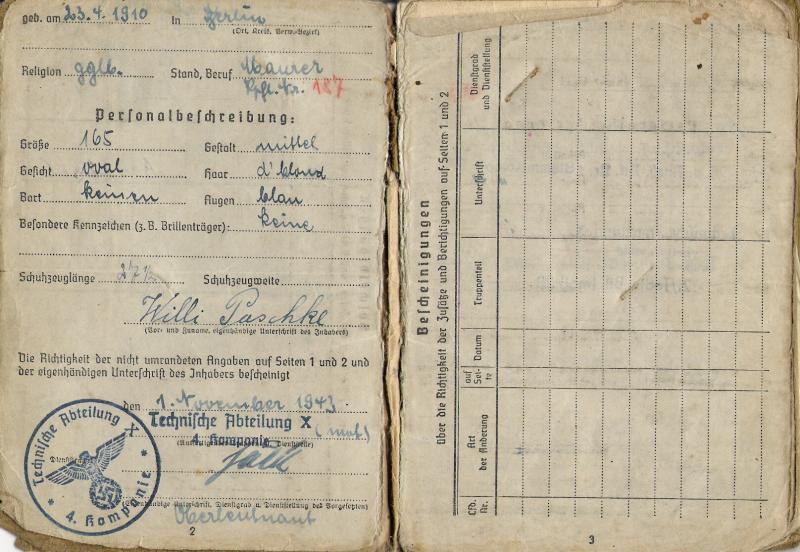 geb. am 23.4.1910 in Berlin
(Ort, Kreis, Verw.-Bezirk)
Religion gglb. Stand, Beruf Maurer
Nr. 187
Personalbeschreibung:
Größe 165 Gestalt mittel
Gesicht oval Haar d'blond
Bart keinen Augen blau
Besondere Kennzeichen (z. B. Brillenträger): keine
Schuhzeuglänge 27½ Schuhzeugweite
Willi Paschke
(Vor- und Zuname, eigenhändige Unterschrift des Inhabers)
Die Richtigkeit der nicht umrandeten Angaben auf Seiten 1 und 2 und
der eigenhändigen Unterschrift des Inhabers bescheinigt
den 1. November 1943
Technische Abteilung X
(mot.)
4. Kompanie
Technische Abteilung X
* 4. Kompanie *
(Eigenhändige Unterschrift, Dienstgrad u. Dienststellung des Vorgesetzten)
Oberleutnant
2
Bescheinigungen
über die Richtigkeit der Zusätze und Berichtigungen auf Seiten 1 und 2
Lfd. Nr.
Art der Änderung
auf Sei-te
Datum
Truppenteil
Unterschrift
Dienstgrad und Dienststellung
3